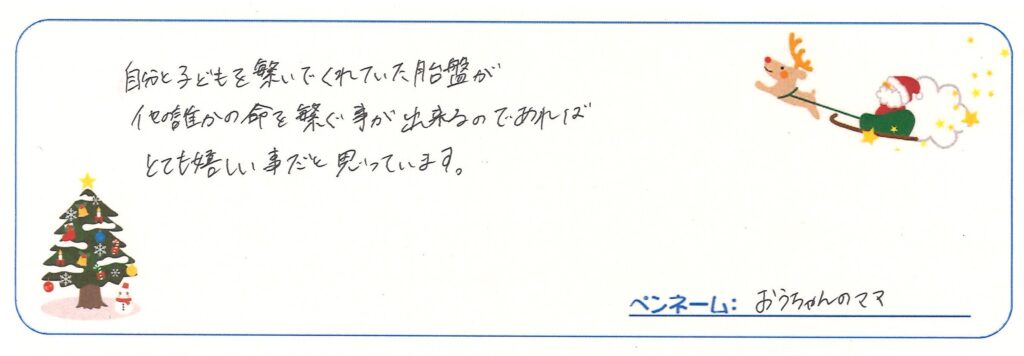 自分と子どもを繋いでくれていた胎盤が
他の誰かの命を繋ぐ事が出来るのであれば
とても嬉しい事だと思っています。
ペンネーム： おうちゃんのママ